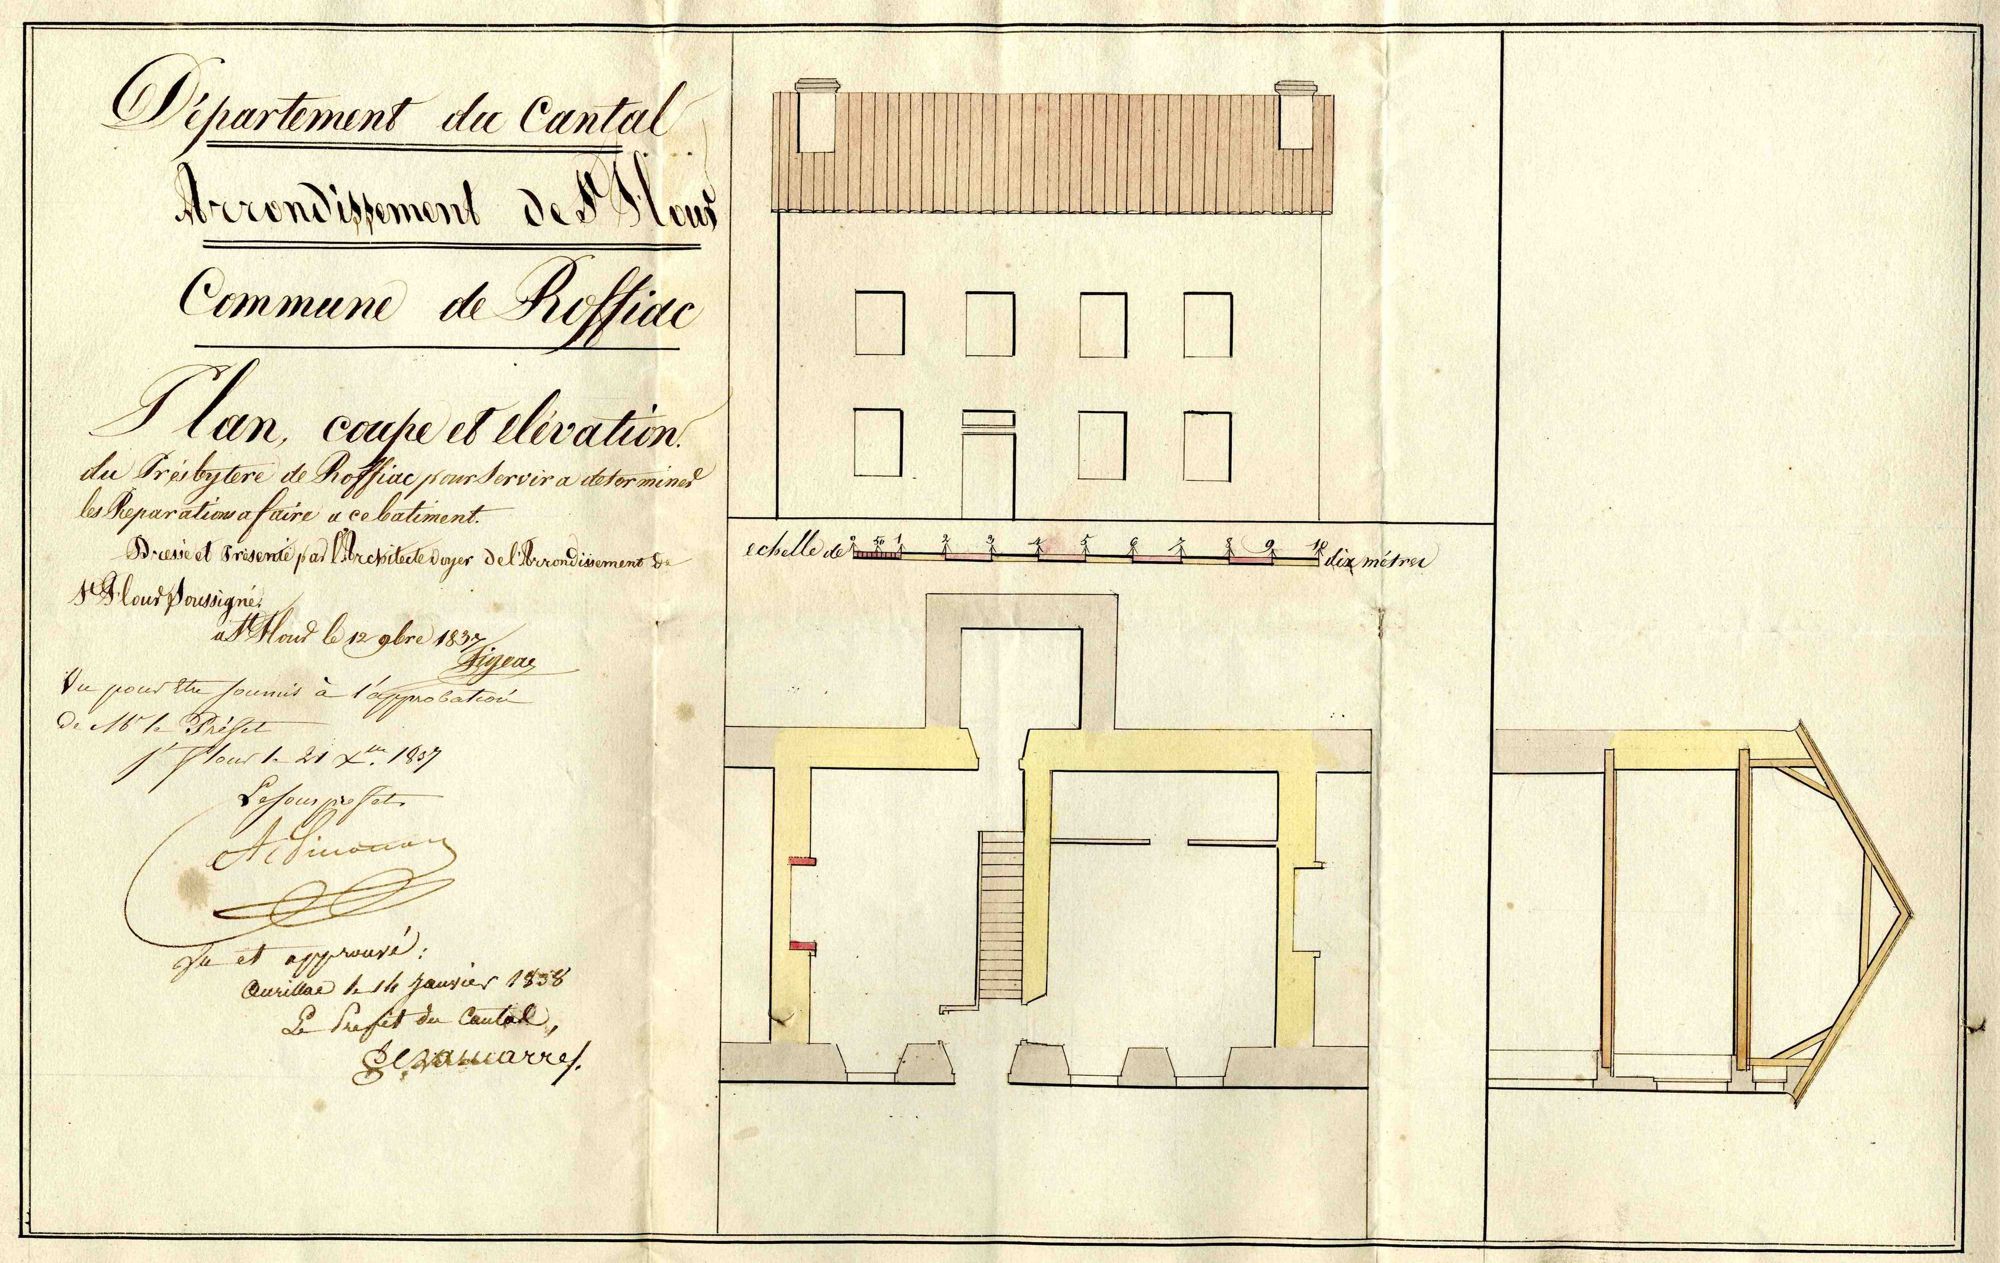 Département du Cantal
Arrondissement de St Flour
Commune de Roffiac
Plan, coupe et elévation.
du Présbytere de Roffiac pour servir a determiner
les Réparations a faire a ce batiment.
Dressé et Présenté par l'Architecte voyer de l'Arrondissement de
St Flour soussigné.
a St Flour le 12 9bre 1837
Vu pour être soumis à l'approbation
de Mr le Préfet
St flour le 21 Xbre 1837
Le sous préfet
Vu et approuvé:
Aurillac le 14 janvier 1838
Le Préfet du Cantal,
echelle de 0 10 1 2 3 4 5 6 7 8 9 10 dix métres